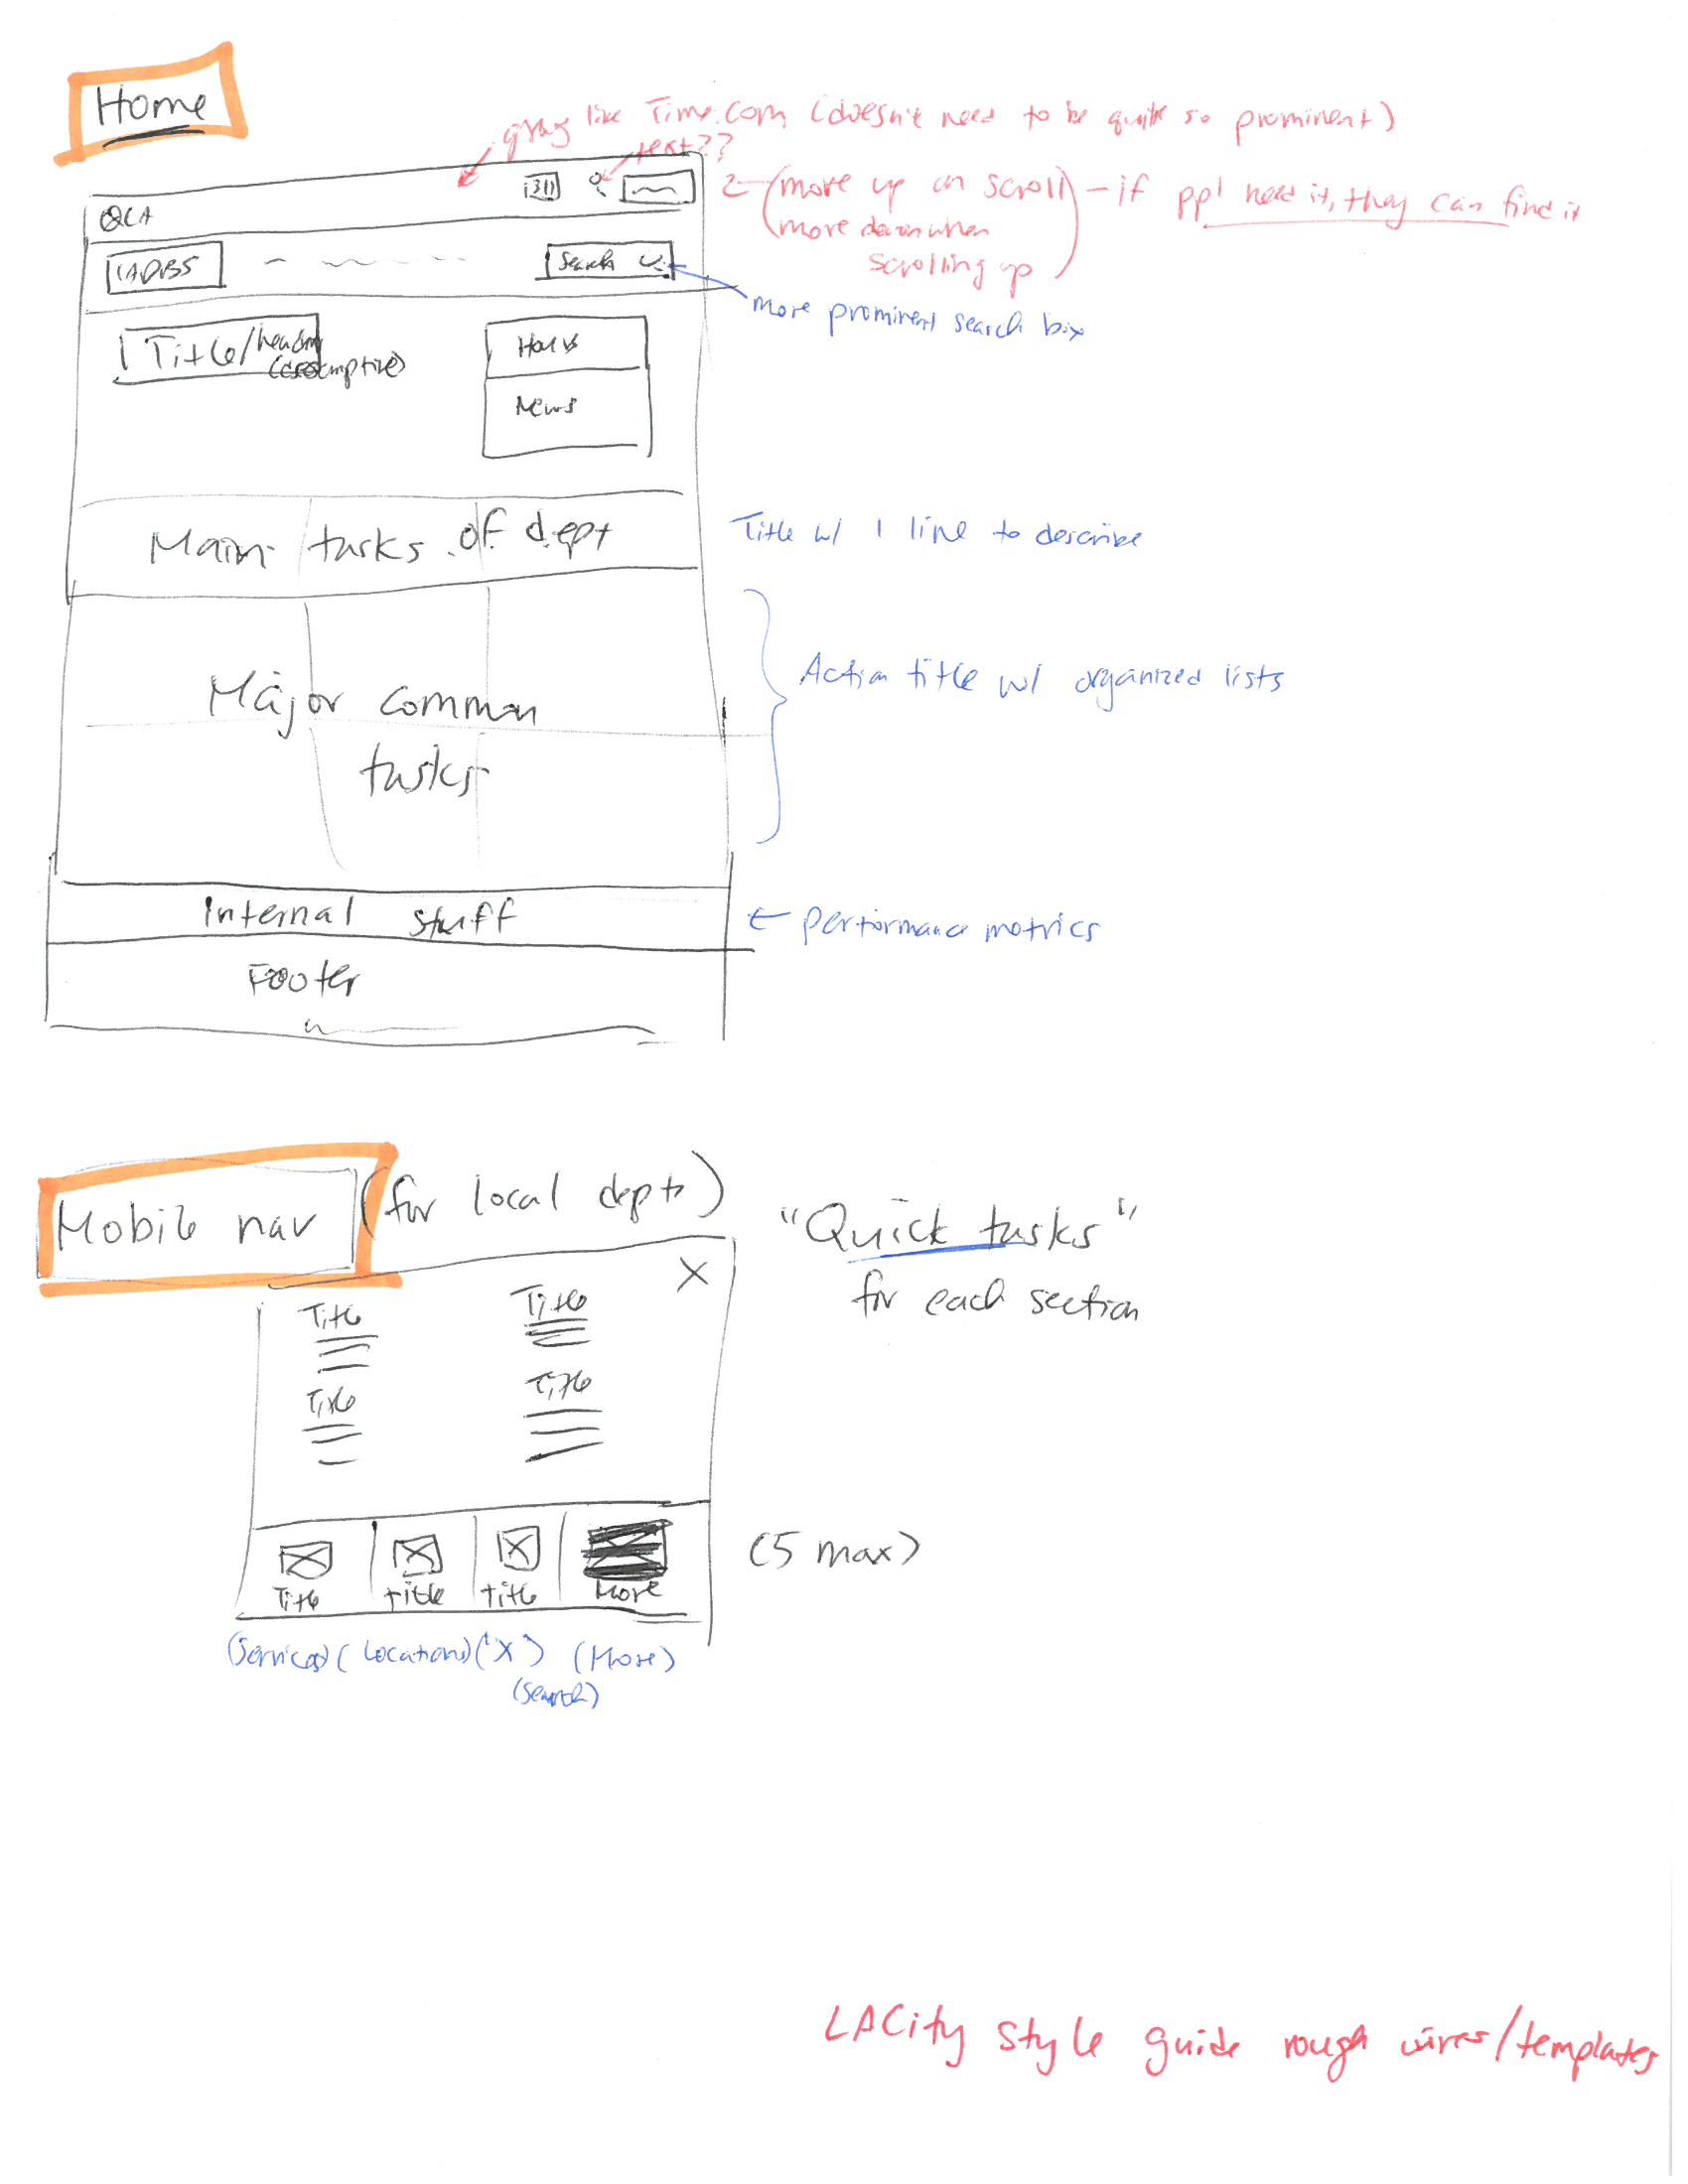 Home
gray like Time.com (doesn't need to be quite so prominent)
text??
311
(move up on scroll) - if ppl need it, they can find it
(move down when
scrolling up)
LADBS
Search
more prominent search box
Title/heading
(descriptive)
Hours
News
Main tasks of dept
Title w/ 1 line to describe
Major common
tasks
Action title w/ organized lists
Internal stuff
← performance metrics
Footer
Mobile nav (for local depts)
"Quick tasks"
for each section
X
Title
Title
Title
Title
(5 max)
Title
title
title
More
(Services) (Locations) ("X") (More)
(search)
LACity Style guide rough wires/templates